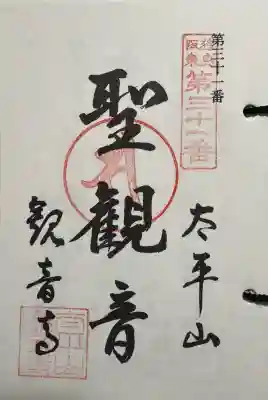 第三十一番
阪東
第三十一番
太平山
聖観音
観音寺